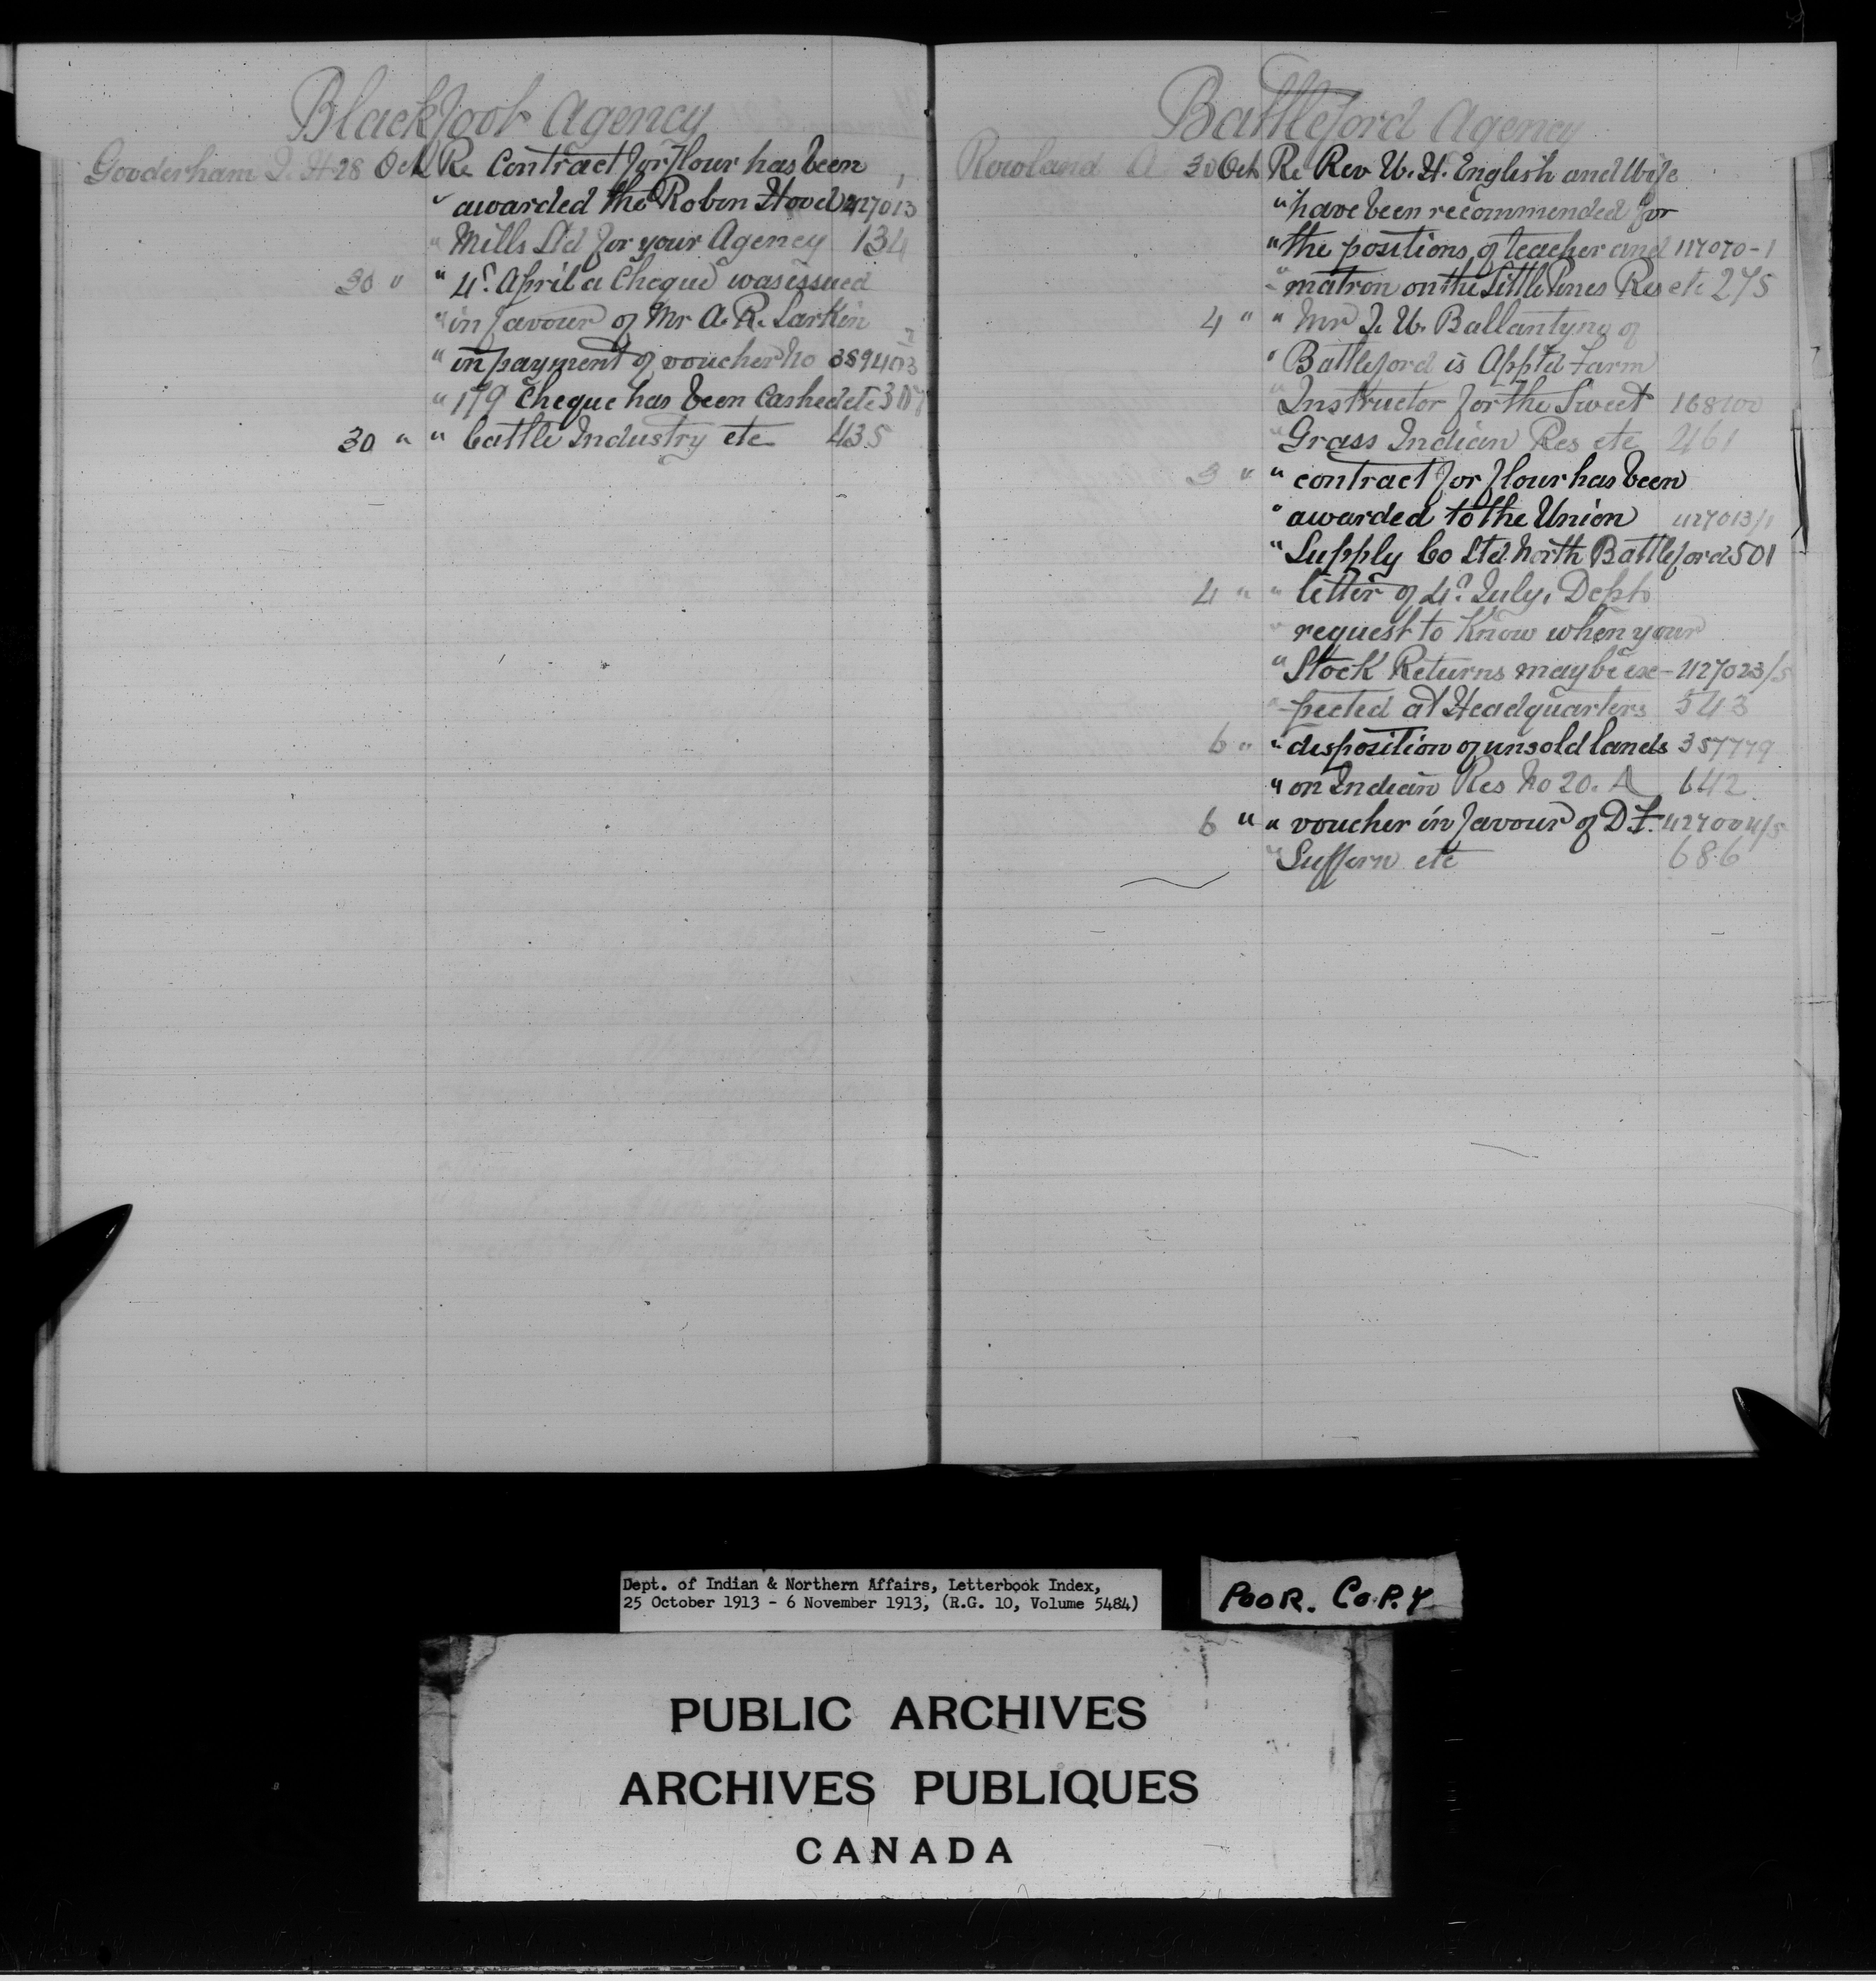 Blackfoot Agency
Gooderham J. H. 28 Oct Re Contract for Flour has been
" awarded the Robin Hood 427013
" Mills Ltd for your Agency 134
30 " " 4th April a Cheque was issued
" in favour of Mr A. R. Larkin
" in payment of voucher No 389403
" 179 Cheque has been Cashed etc
30 " " Cattle Industry etc 435
Battleford Agency
Rowland A 30 Oct Re Rev W. H. English and Wife
" have been recommended for
" the positions of teacher and 117070-1
" matron on the Little Pines Res etc 275
4 " " Mr J. W. Ballantyne of
" Battleford is App'td Farm
" Instructor for the Sweet
" Grass Indian Res etc 461
3 " " contract for flour has been
" awarded to the Union 427013/1
" Supply Co Ltd North Battleford 501
4 " " letter of 4th July, Dept
" request to Know when your
" Stock Returns may be ex- 427023/5
" -pected at Headquarters 543
6 " " disposition of unsold lands 357779
" on Indian Res No 20. A 642
6 " " voucher in favour of D. F. 427004/5
" Suffern etc 686
Dept. of Indian & Northern Affairs, Letterbook Index,
25 October 1913 - 6 November 1913, (R.G. 10, Volume 5484)
POOR. COPY
PUBLIC ARCHIVES
ARCHIVES PUBLIQUES
CANADA